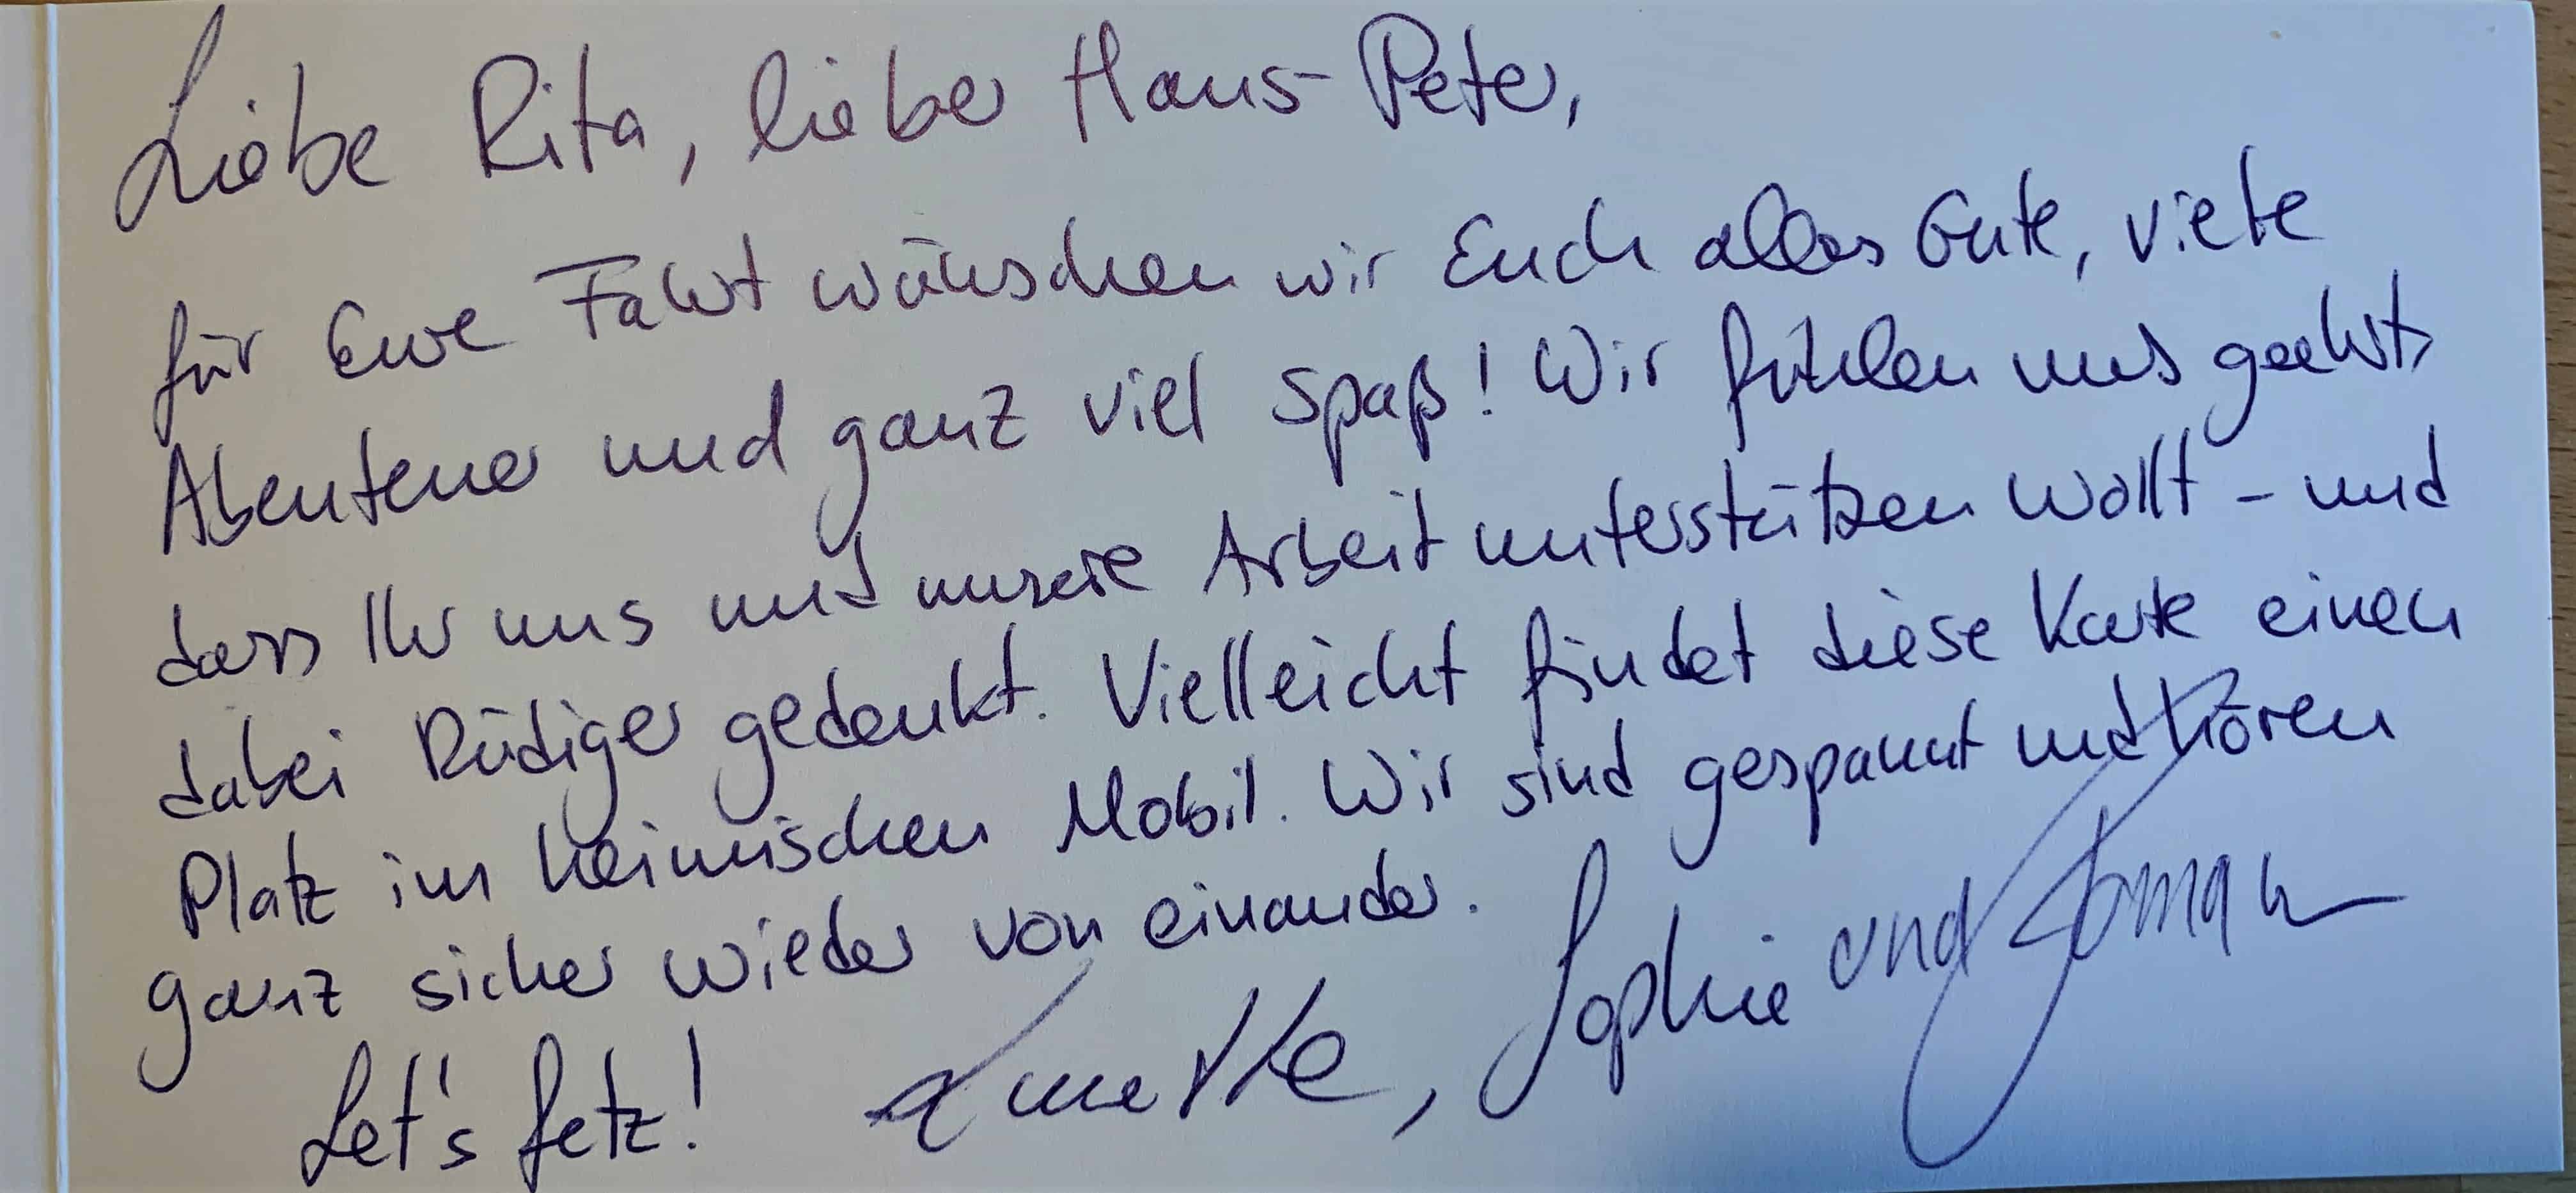 Liebe Rita, lieber Hans-Peter,
für Eure Fahrt wünschen wir Euch alles Gute, viele
Abenteuer und ganz viel Spaß! Wir fühlen uns geehrt,
dass Ihr uns und unsere Arbeit unterstützen wollt - und
dabei Rüdiger gedenkt. Vielleicht findet diese Karte einen
Platz im heimischen Mobil. Wir sind gespannt und hören
ganz sicher wieder von einander.
Let's fetz! Annette, Sophie und